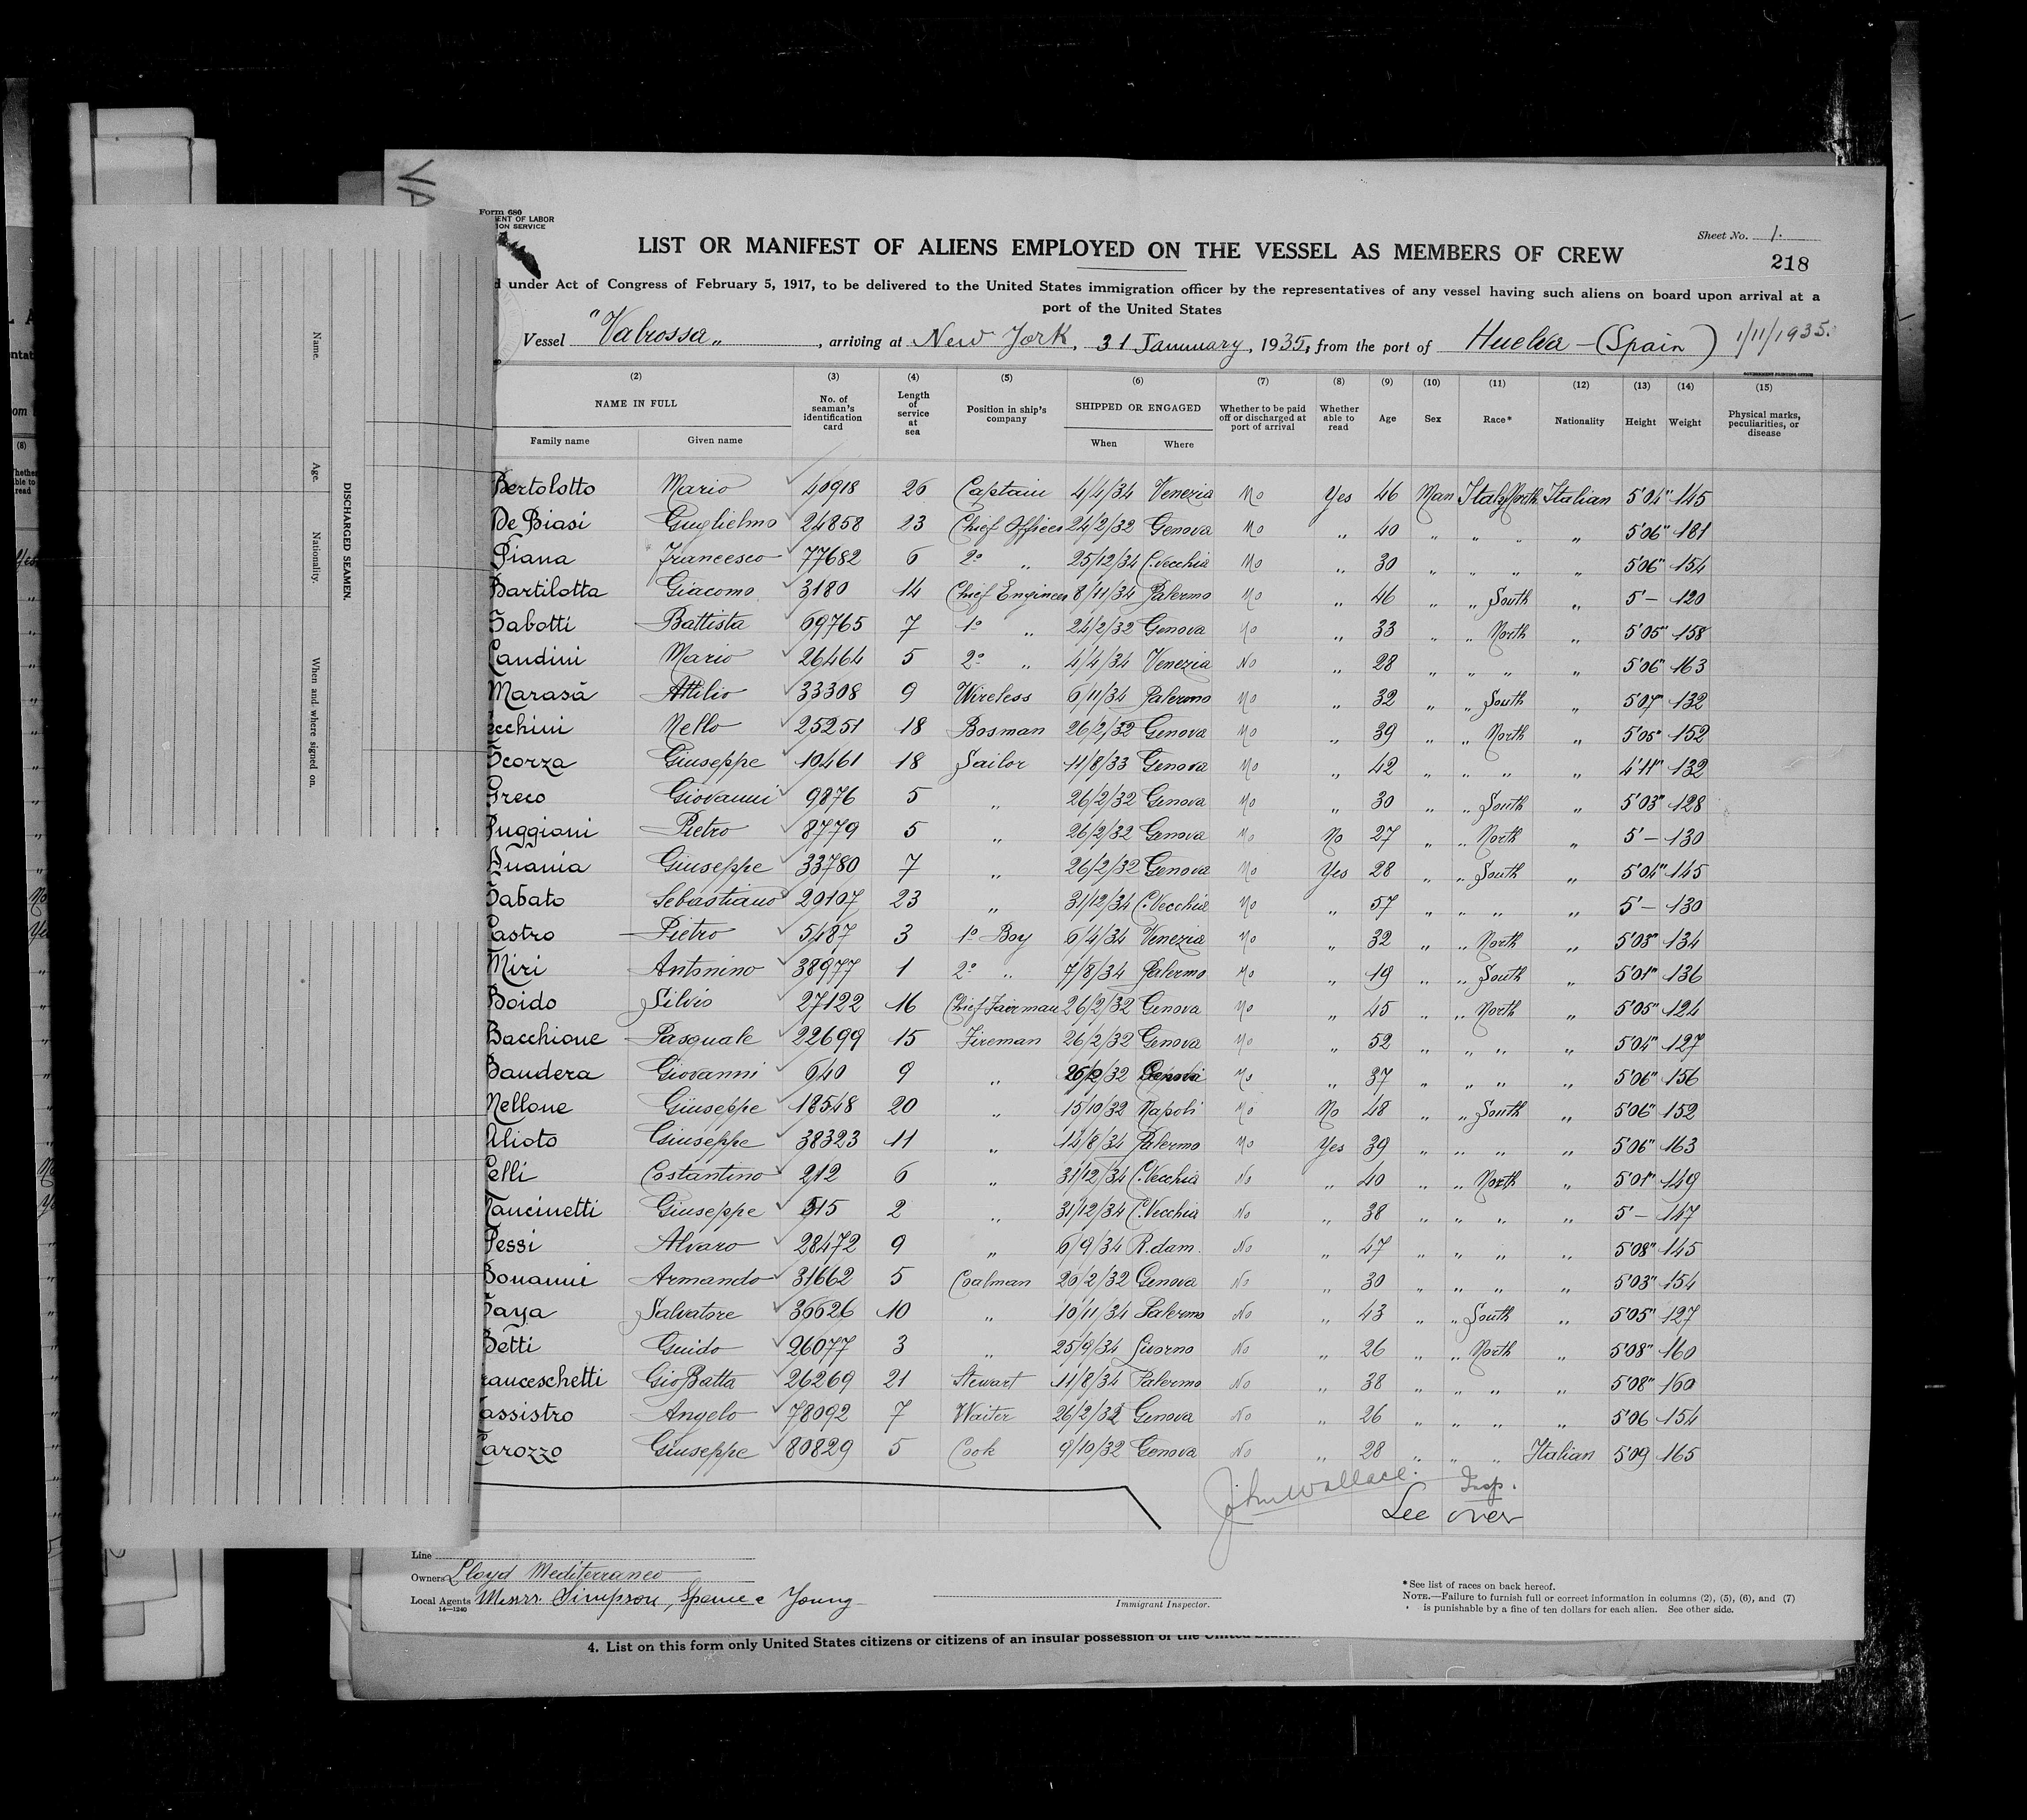 VA
Form 680
ENT OF LABOR
ION SERVICE
Sheet No. 1.
LIST OR MANIFEST OF ALIENS EMPLOYED ON THE VESSEL AS MEMBERS OF CREW
218
d under Act of Congress of February 5, 1917, to be delivered to the United States immigration officer by the representatives of any vessel having such aliens on board upon arrival at a
port of the United States
Vessel "Valrossa", arriving at New York, 31 January, 1935, from the port of Huelva - (Spain) 1/11/1935.
GOVERNMENT PRINTING OFFICE
(2) (3) (4) (5) (6) (7) (8) (9) (10) (11) (12) (13) (14) (15)
NAME IN FULL No. of seaman's identification card Length of service at sea Position in ship's company SHIPPED OR ENGAGED Whether to be paid off or discharged at port of arrival Whether able to read Age Sex Race* Nationality Height Weight Physical marks, peculiarities, or disease
Family name Given name When Where
Bertolotto Mario 40918 26 Captain 4/4/34 Venezia No Yes 46 Man Italy North Italian 5'04" 145
De Biasi Guglielmo 24858 23 Chief Officer 24/2/32 Genova No " 40 " " " " 5'06" 181
Piana Francesco 77682 6 2º " 25/12/34 C.Vecchia No " 30 " " " " 5'06" 154
Bartilotta Giacomo 3180 14 Chief Engineer 8/11/34 Palermo No " 46 " " South " 5'— 120
Sabotti Battista 69765 7 1º " 24/2/32 Genova No " 33 " " North " 5'05" 158
Candini Mario 26464 5 2º " 4/4/34 Venezia No " 28 " " " " 5'06" 163
Marasá Attilio 33308 9 Wireless 6/11/34 Palermo No " 32 " " South " 5'07" 132
cchini Nello 25251 18 Bosman 26/2/32 Genova No " 39 " " North " 5'05" 152
Scorza Giuseppe 10461 18 Sailor 11/8/33 Genova No " 42 " " " " 4'11" 132
Greco Giovanni 9876 5 " 26/2/32 Genova No " 30 " " South " 5'03" 128
Puggioni Pietro 8779 5 " 26/2/32 Genova No No 27 " " North " 5'— 130
Anania Giuseppe 33780 7 " 26/2/32 Genova No Yes 28 " " South " 5'04" 145
Sabato Sebastiano 20107 23 " 31/12/34 C.Vecchia No " 57 " " " " 5'— 130
Castro Pietro 5487 3 1º Boy 6/4/34 Venezia No " 32 " " North " 5'03" 134
Miri Antonino 38977 1 2º " 7/8/34 Palermo No " 19 " " South " 5'01" 136
Boido Silvio 27122 16 Chief Fairman 26/2/32 Genova No " 45 " " North " 5'05" 124
Bacchione Pasquale 22699 15 Fireman 26/2/32 Genova No " 52 " " " " 5'04" 127
Bandera Giovanni 640 9 " 26/2/32 Genova No " 37 " " " " 5'06" 156
Mellone Giuseppe 18548 20 " 15/10/32 Napoli No No 48 " " South " 5'06" 152
Alioto Giuseppe 38323 11 " 14/8/34 Palermo No Yes 39 " " " " 5'06" 163
Celli Costantino 212 6 " 31/12/34 C.Vecchia No " 40 " " North " 5'01" 149
Mancinetti Giuseppe 515 2 " 31/12/34 C.Vecchia No " 38 " " " " 5'— 147
Pessi Alvaro 28472 9 " 6/9/34 R.dam. No " 47 " " " " 5'08" 145
Bonanni Armando 31662 5 Coalman 26/2/32 Genova No 30 " " " " 5'03" 154
Saya Salvatore 36626 10 " 10/11/34 Palermo No " 43 " " South " 5'05" 127
Betti Guido 26077 3 " 25/9/34 Livorno No " 26 " " North " 5'08" 160
ranceschetti GioBatta 26269 21 Stewart 11/8/34 Palermo No " 38 " " " " 5'08" 160
assistro Angelo 78092 7 Waiter 26/2/32 Genova No " 26 " " " " 5'06 154
Carozzo Giuseppe 80829 5 Cook 9/10/32 Genova No " 28 " " " Italian 5'09 165
John Wallace. Insp.
See over
Line
Owners Lloyd Mediterraneo
Local Agents Messrs. Simpson, Spence e Young
14—1240
Immigrant Inspector.
*See list of races on back hereof.
NOTE.—Failure to furnish full or correct information in columns (2), (5), (6), and (7)
is punishable by a fine of ten dollars for each alien. See other side.
4. List on this form only United States citizens or citizens of an insular possession of the United
DISCHARGED SEAMEN.
Name.
Age.
Nationality.
When and where signed on.